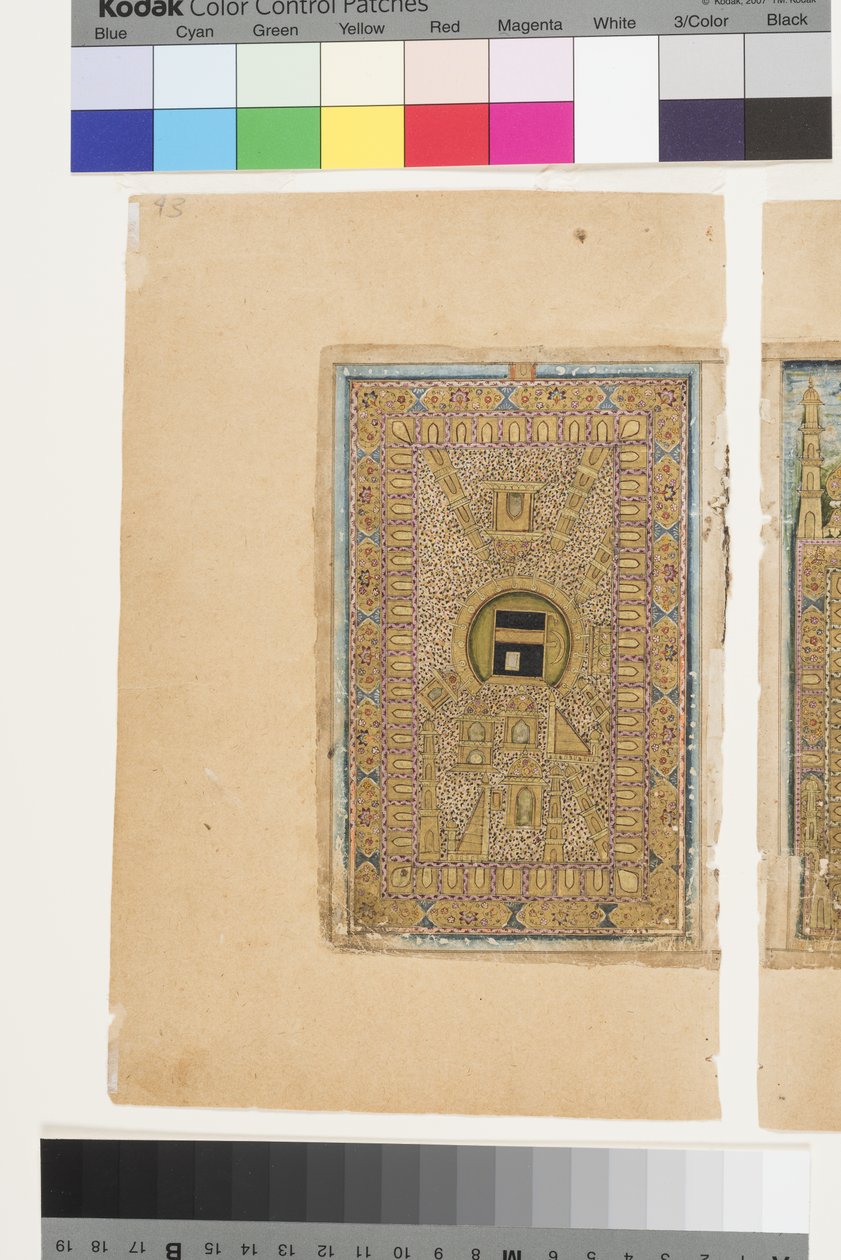 Kodak Color Control Patches
© Kodak, 2007 TM: Kodak
Blue Cyan Green Yellow Red Magenta White 3/Color Black
93
19 18 17 B 15 14 13 12 11 10 9 8 M 6 5 4 3 2 1 A